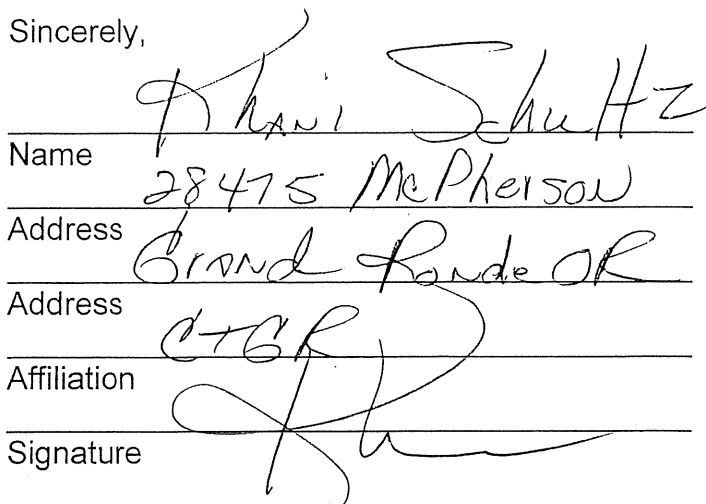 Sincerely,
Khani Schultz
Name
28475 McPherson
Address
Grand Ronde OR
Address
CTGR
Affiliation
Signature